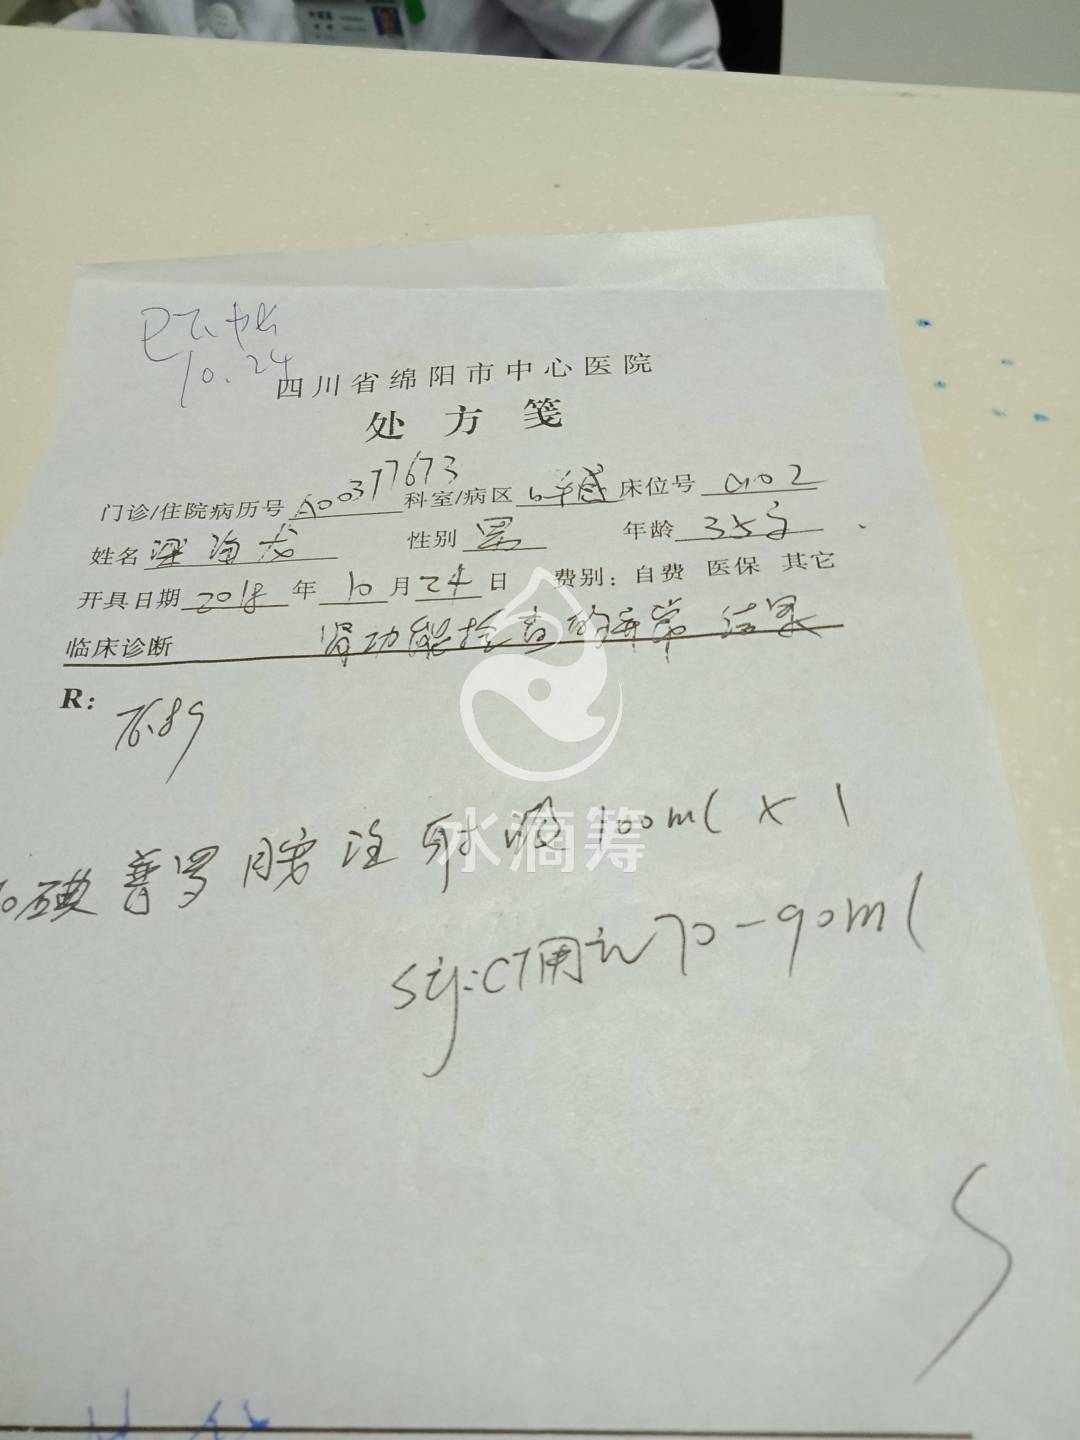 10.24
四川省绵阳市中心医院
处方笺
门诊/住院病历号 A00377673 科室/病区 床位号
姓名 梁海龙 性别 男 年龄 35岁
开具日期 2018 年 10 月 24 日 费别: 自费 医保 其它
临床诊断 肾功能检查的异常结果
R:
碘普罗胺注射液 100ml × 1
Sig: CT用 70-90ml
水滴筹